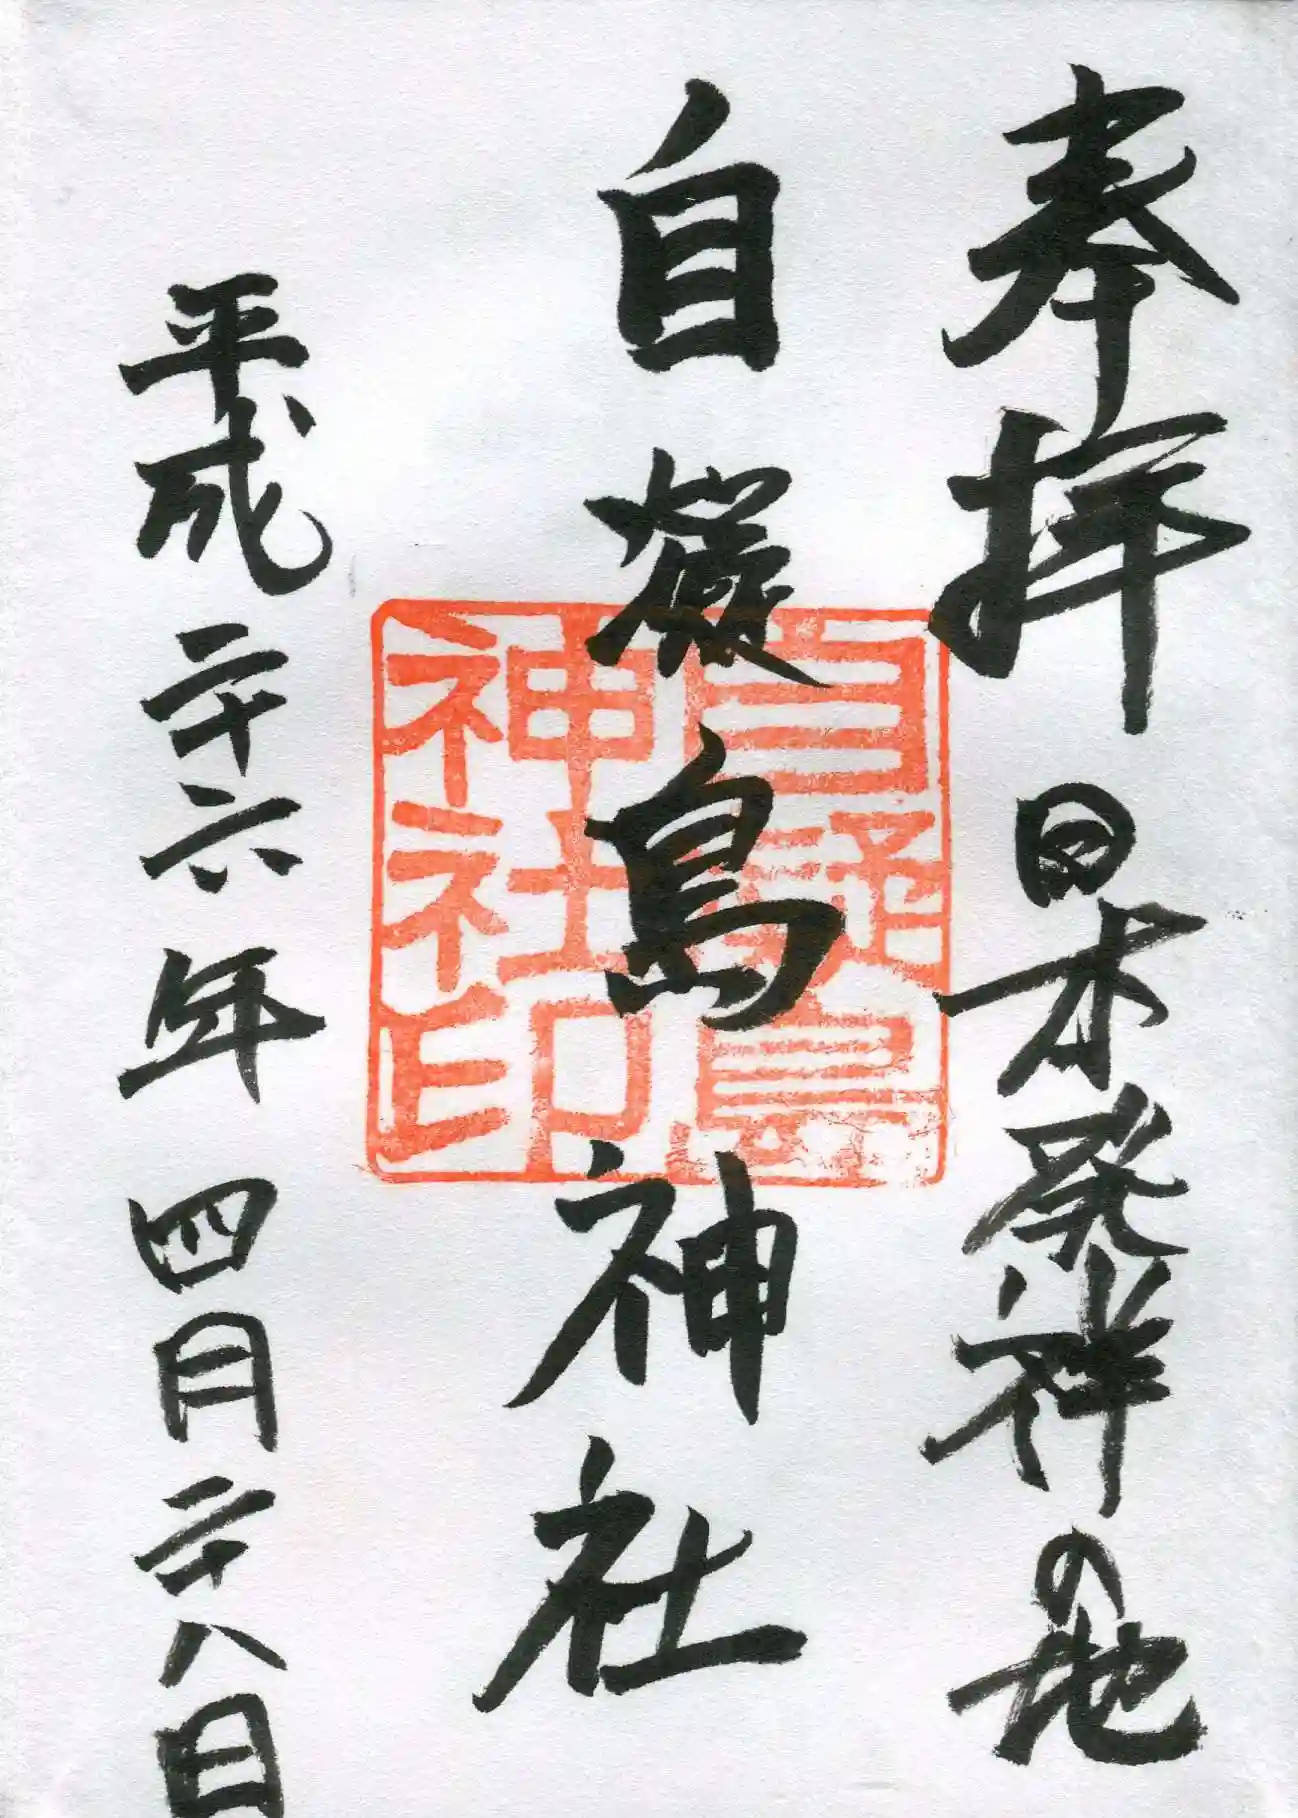 奉拝 日本発祥の地
自凝島神社
自凝島
神社印
平成二十六年四月二十八日